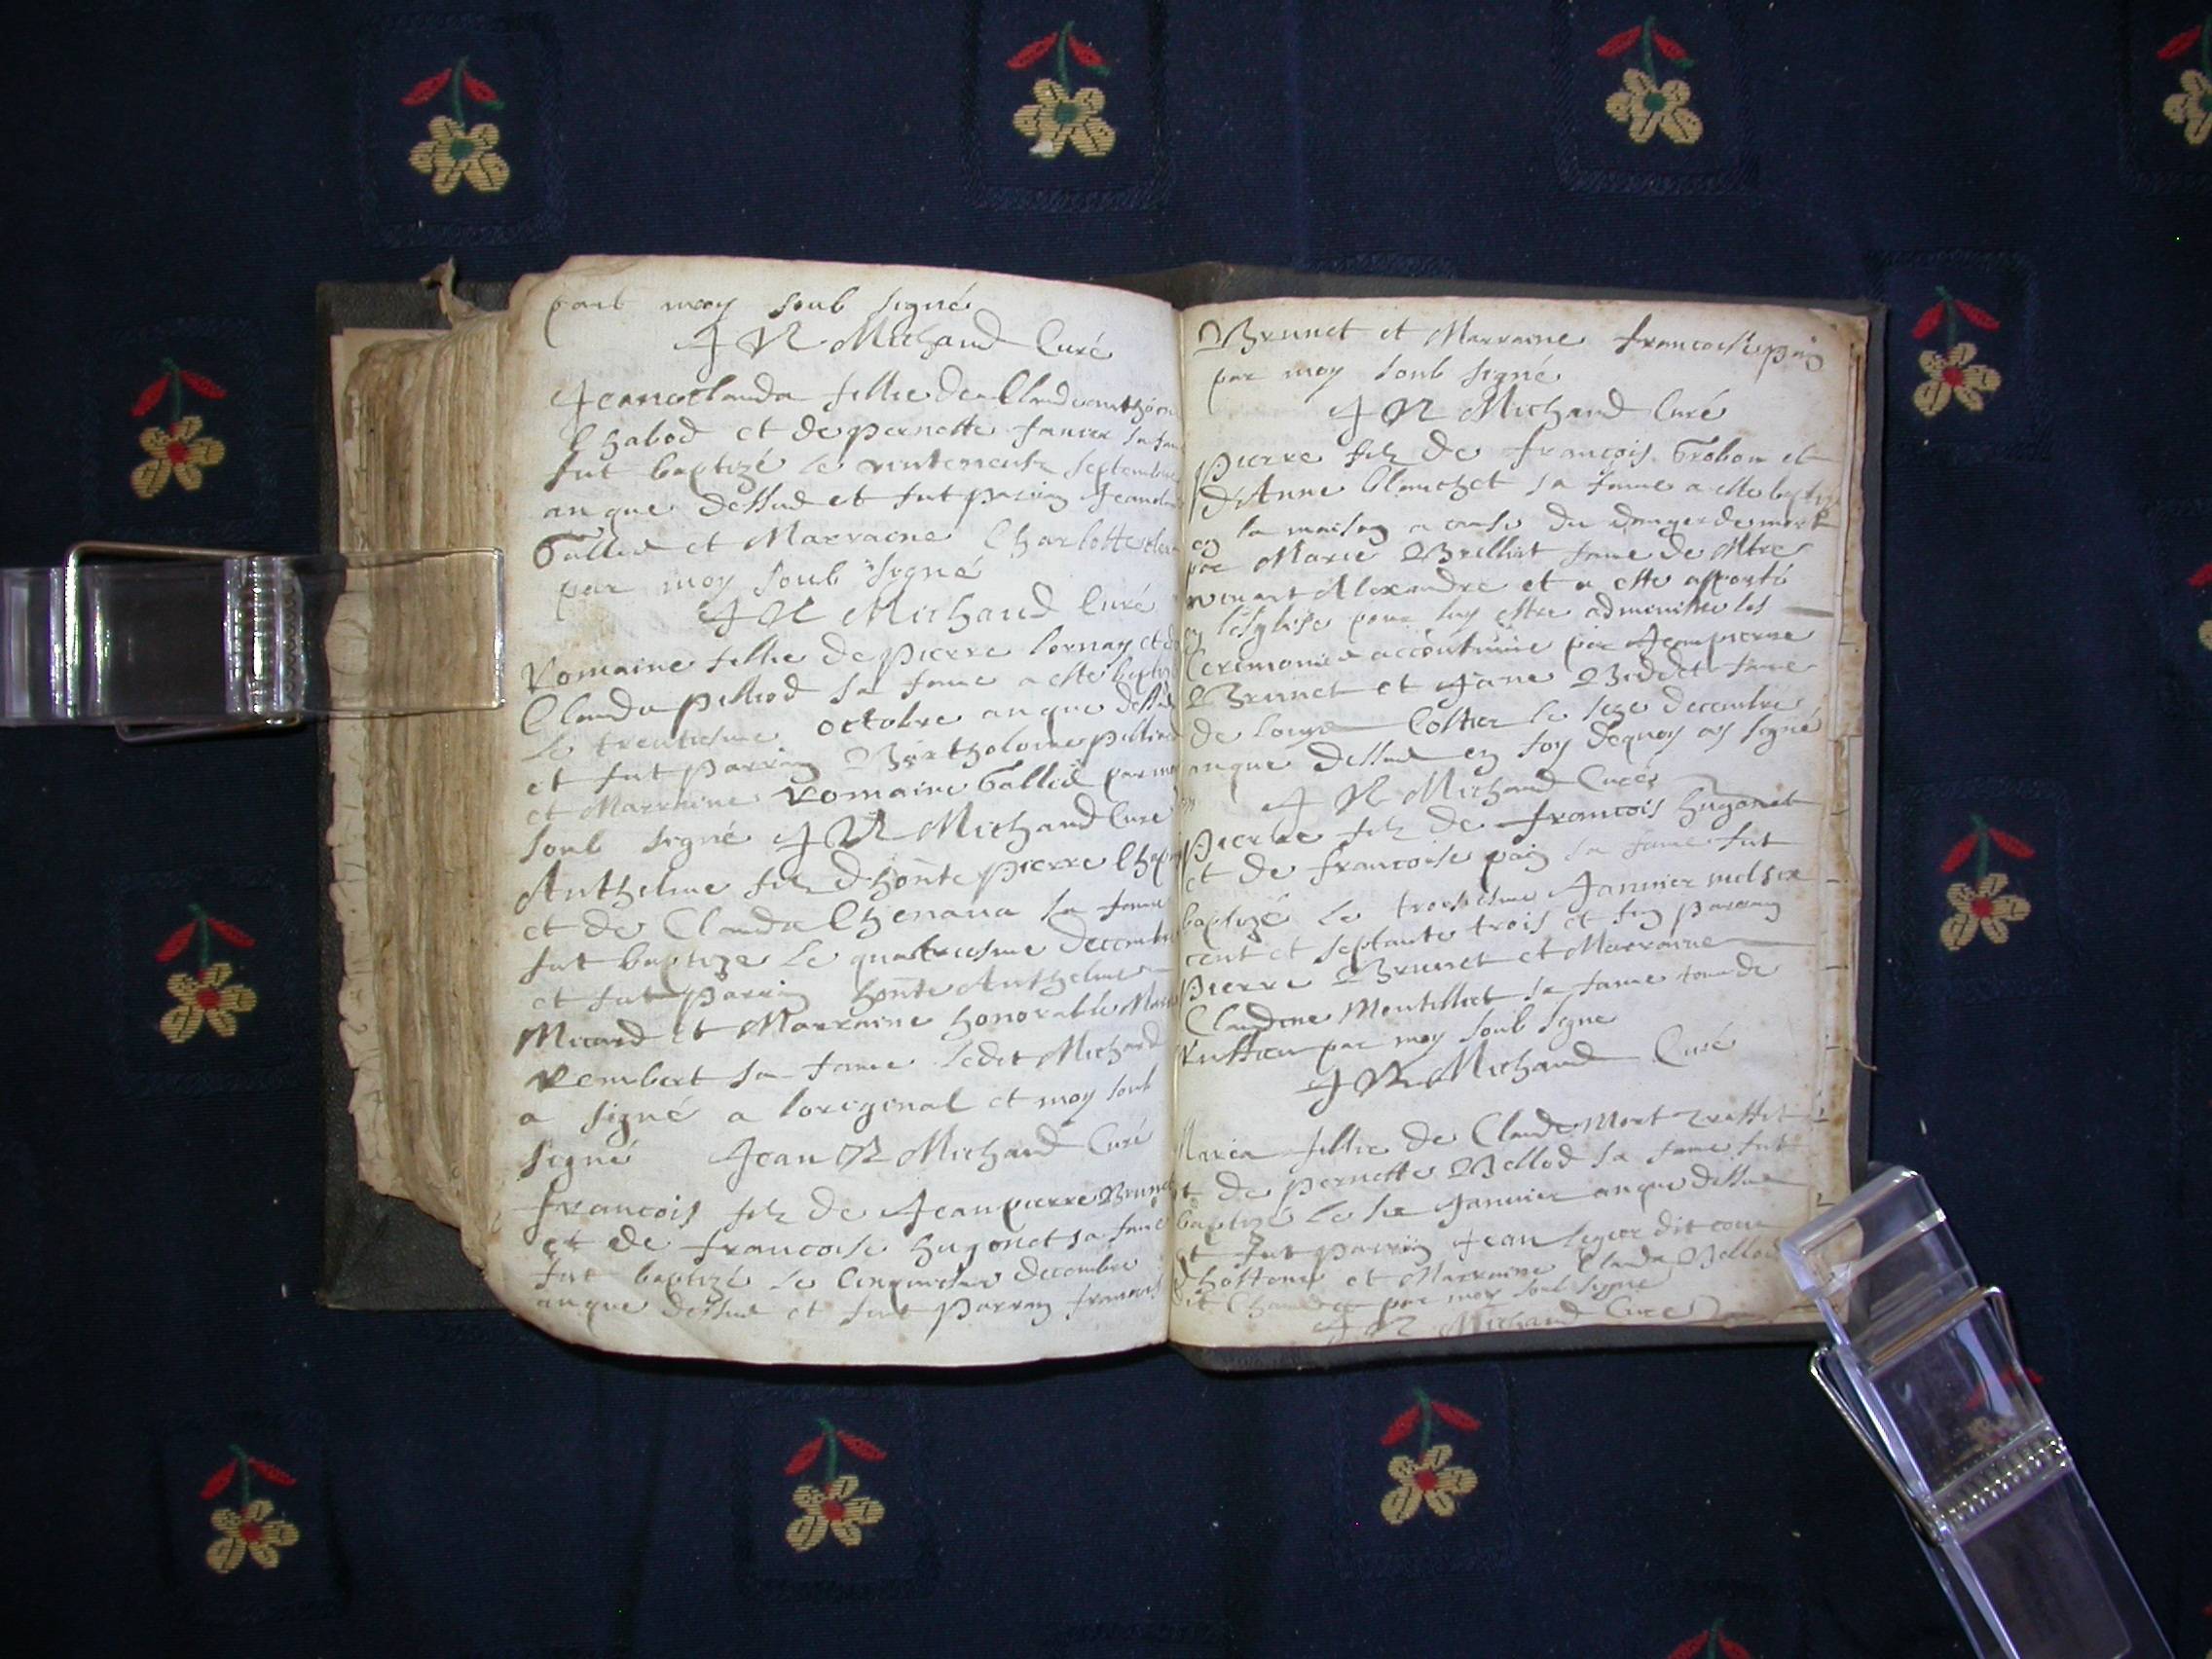 part moy soub signé
J R Michaud Curé
Jeanoclauda fillie de Claude anthoine
Chabod et de pernette Janver sa fame
fut baptizé le vintneusie septembre
an que dessud et fut parrin
Galliet et Marraine Charlotte
par moy soub signé
J R Michaud Curé
Romaine fillie de pierre Cornay et de
Clauda pilliod sa fame a este baptizé
le trentiesme octobre an que dessud
et fut parrin Bartholome pilliod
et Marraine Romaine Galliet par moy
soub signé J R Michaud Curé
Anthelme filz d'honte pierre
et de Clauda Chenava sa fame
fut baptize le quatriesme decembre
et fut parrin honte Anthelme
Micard et Marraine honorable Marie
Rembert sa fame ledit Michard
a signé a loreginal et moy soub
signé Jean R Michaud Curé
francois filz de Jean pierre Brunet
et de francoise hugonet sa fame
fut baptizé le Cinquiesme decembre
an que dessud et fut parrin francois
Brunet et Marraine francoise pain
par moy soub signé
J R Michaud Curé
pierre filz de francois Grobon et
d'Anne Blanchet sa fame a este baptizé
en la maison a cause du danger de mort
par Marie Brilliat fame de Mtre
Alexandre et a este apporté
en l'eglise pour luy estre administre les
Ceremonies accoutumée par Jean pierre
Brunet et Jane Bididet fame
de Louys Costier le seze decembre
an que dessud en foy dequoy ay signé
J R Michaud Curé
pierre filz de francois hugonet
et de francoise pain sa fame fut
baptizé le troisiesme Janvier mil six
cent et septante trois et fut parrin
pierre Brunet et Marraine
Claudine Montilliet sa fame tous de
par moy soub signe
J R Michaud Curé
Maria fillie de Claude Mort
et de pernette Bellod sa fame fut
baptizé le six Janvier an que dessud
et fut parrin Jean legier dit
et Marraine Clauda Bellod
dit par moy soub signé
J R Michaud Curé